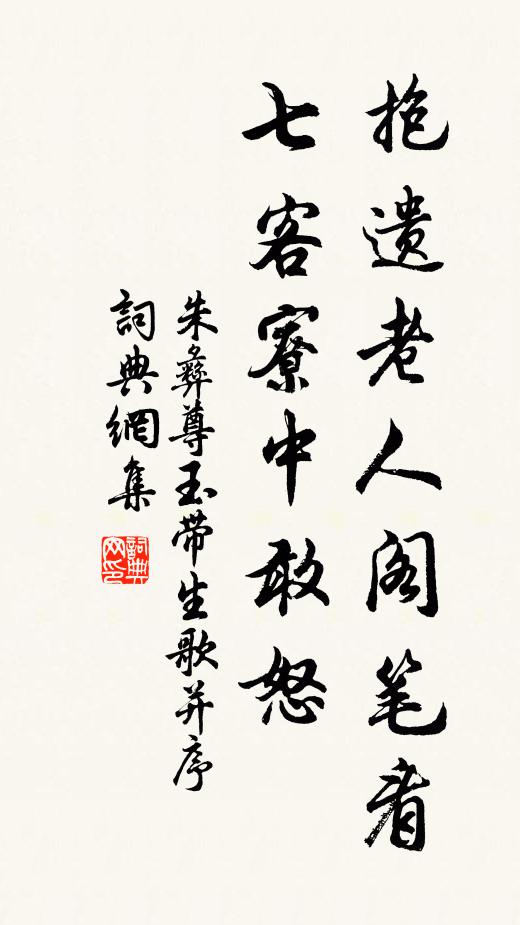 抱遗老人阁笔看
七客寮中敢怒
朱彝尊玉带生歌并序
詞典網集
詞典网印